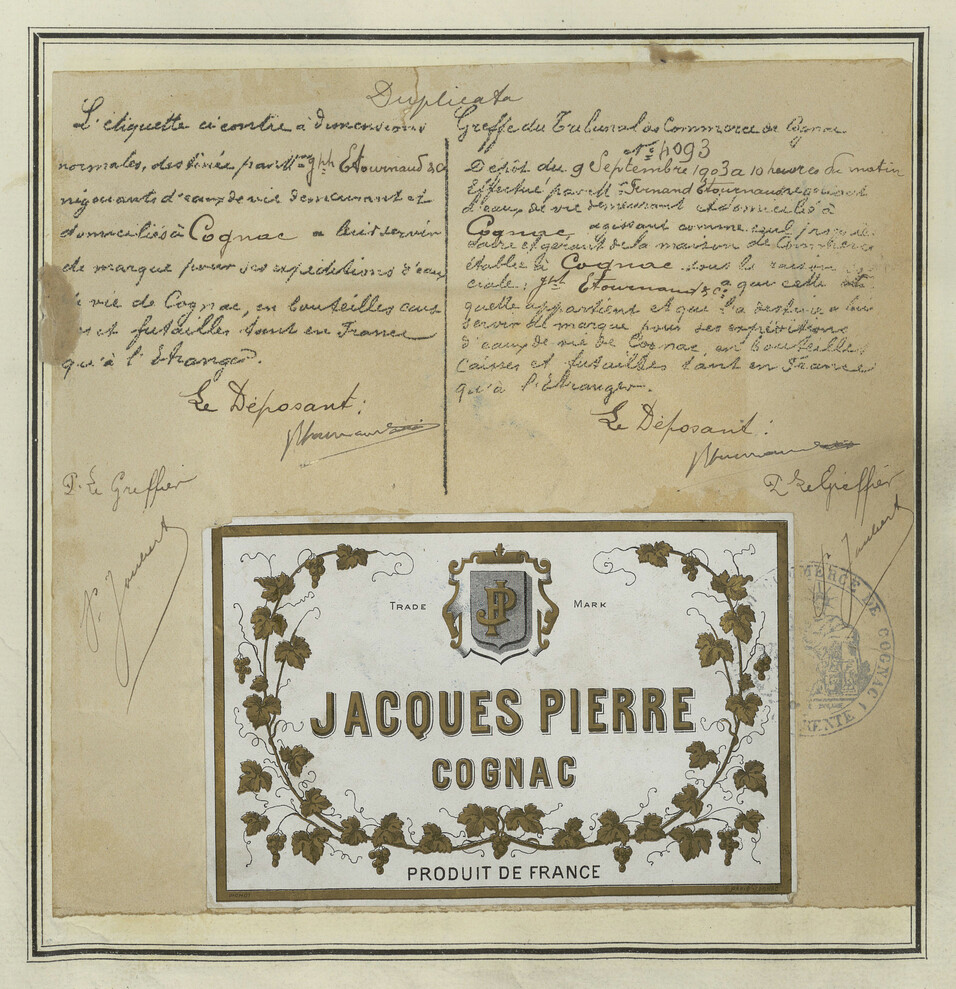 Duplicata
L'étiquette ci contre à dimensions
normales, destinée par Mrs Jph Etournaud & Co
négociants d'eaux de vie demeurant et
domiciliés à Cognac a leur servir
de marque pour ses expéditions d'eaux
de vie de Cognac, en bouteilles cais
ses et futailles tant en France
qu'à l'étranger.
Le Déposant:
P. Le Greffier
Joubert
Greffe du Tribunal de Commerce de Cognac
No 4093
Dépôt du 9 Septembre 1903 à 10 heures du matin
Effectué par Mr Fernand Etournaud négociant
d'eaux de vie demeurant et domicilié à
Cognac agissant comme seul
et gérant de la maison de Commerce
établie à Cognac sous la raison so
ciale: Jph Etournaud & Co a que cette éti
quette appartient et que l'a destinée a leur
servir de marque pour ses expéditions
d'eaux de vie de Cognac, en bouteilles
caisses et futailles tant en France
qu'à l'étranger.
Le Déposant:
P. Le Greffier
Joubert
COMMERCE DE COGNAC
TRADE MARK
JP
JACQUES PIERRE
COGNAC
PRODUIT DE FRANCE